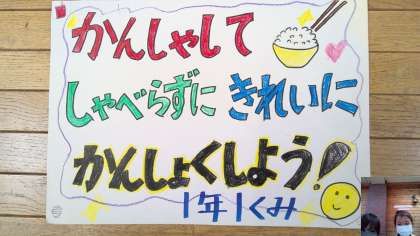 かんしゃして
しゃべらずに きれいに
かんしょくしよう!
1年1くみ